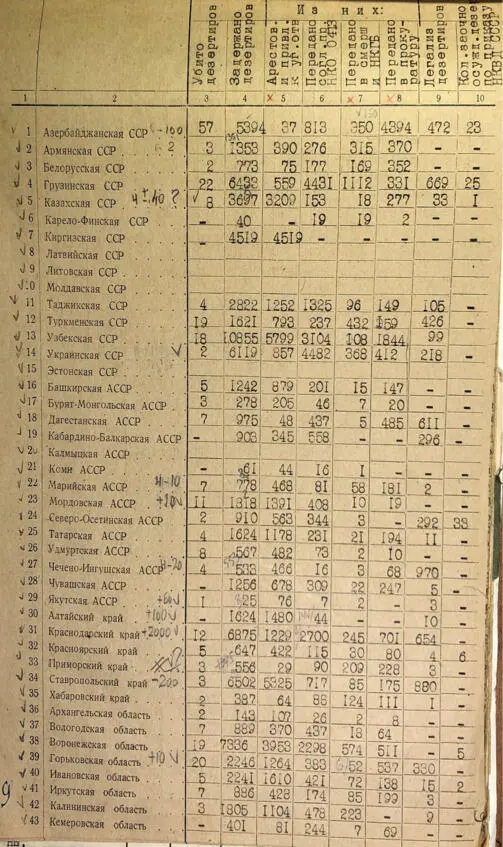 Из них:
Убито дезертиров
Задержано дезертиров
Арестов. и привл. к уг.отв
Передано НКО
Передано в смерш и НКГБ
Передано в проку- ратуру
Легализ дезертиров
Кол. заочно
1 2 3 4 5 6 7 8 9 10
1 Азербайджанская ССР -100 57 5394 37 813 350 4394 472 23
2 Армянская ССР 2 3 1353 390 276 315 370 - -
3 Белорусская ССР 2 773 75 177 169 352
4 Грузинская ССР 22 6433 559 4431 1112 331 669 25
5 Казахская ССР ? 8 3697 3209 153 18 277 33 1
6 Карело-Финская ССР - 40 - 19 19 2 - -
7 Киргизская ССР - 4519 4519 - - - - -
8 Латвийская ССР
9 Литовская ССР
10 Молдавская ССР
11 Таджикская ССР 4 2822 1252 1325 96 149 105 -
12 Туркменская ССР 19 1621 793 237 432 159 426
13 Узбекская ССР 18 10855 5799 3104 108 1844 99
14 Украинская ССР 2 6119 857 4482 368 412 218 -
15 Эстонская ССР
16 Башкирская АССР 5 1242 879 201 15 147 -
17 Бурят-Монгольская АССР 3 278 205 46 7 20 - -
18 Дагестанская АССР 7 975 48 437 5 485 611 -
19 Кабардино-Балкарская АССР - 903 345 558 - - 296 -
20 Калмыцкая АССР
21 Коми АССР - 61 44 16 1 - - -
22 Марийская АССР -10 7 778 468 81 58 181 2 -
23 Мордовская АССР 11 1318 1391 408 10 19 - -
24 Северо-Осетинская АССР 2 910 563 344 3 - 292 33
25 Татарская АССР 4 1624 1178 231 21 194 11 -
26 Удмуртская АССР 8 567 482 73 2 10 - -
27 Чечено-Ингушская АССР -20 4 533 466 16 3 68 970 -
28 Чувашская АССР - 1256 678 309 22 247 5 -
29 Якутская АССР 1 825 76 7 2 - 3 -
30 Алтайский край +100 - 1624 1480 44 - - 10 -
31 Краснодарский край +2000 12 6875 1229 2700 245 701 654 -
32 Красноярский край 5 647 422 115 30 80 4 6
33 Приморский край ? 3 556 29 90 209 228 3 -
34 Ставропольский край -200 3 6502 5325 717 85 175 880 -
35 Хабаровский край 2 387 64 88 124 111 1 -
36 Архангельская область 2 143 107 26 2 8 - -
37 Вологодская область 7 889 370 437 18 64 - -
38 Воронежская область 19 7336 3953 2298 574 511 - 5
39 Горьковская область +10 20 2246 1264 383 52 537 330 -
40 Ивановская область 5 2241 1610 421 72 138 15 2
41 Иркутская область 7 886 428 174 85 199 3 -
42 Калининская область 3 1805 1104 478 223 - 9 -
43 Кемеровская область - 401 81 244 7 69 - -
9